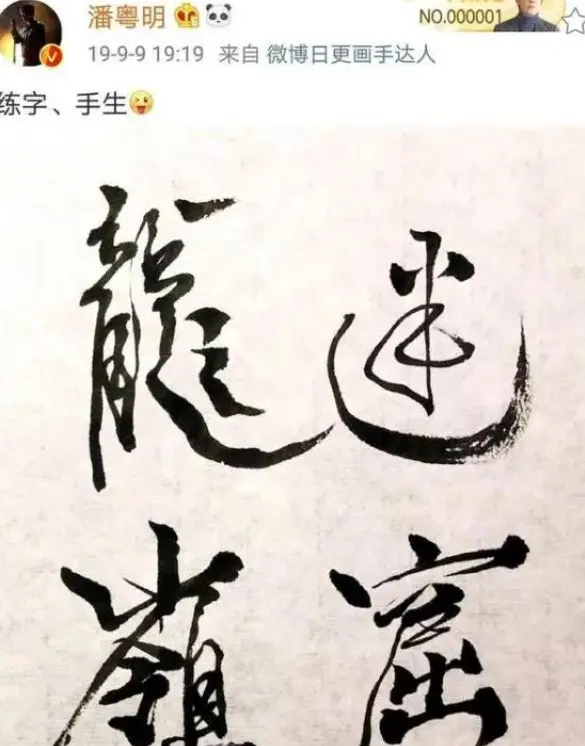 潘粤明
NO.000001
19-9-9 19:19 来自 微博日更画手达人
练字、手生
龍迷
嶺窟